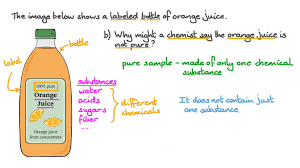 The image below shows a labeled bottle of orange juice.
b) Why might a chemist say the orange juice is
not pure?
bottle
label
pure sample - made of only one chemical
substance
100% pure
Orange
Juice
Orange juice
from concentrate
substances
water
acids
sugars
fiber
...
different
chemicals
It does not contain just
one substance.